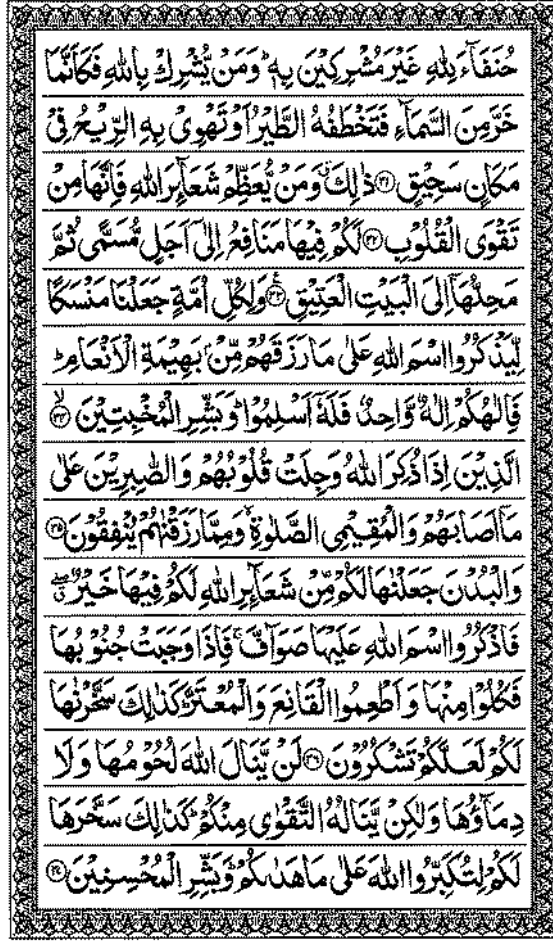 حُنَفَآءَ لِلّٰهِ غَيْرَ مُشْرِكِيْنَ بِهٖ ؕ وَمَنْ يُّشْرِكْ بِاللّٰهِ فَكَاَنَّمَا
خَرَّ مِنَ السَّمَآءِ فَتَخْطَفُهُ الطَّيْرُ اَوْ تَهْوِىْ بِهِ الرِّيْحُ فِىْ
مَكَانٍ سَحِيْقٍ ﴿۳۱﴾ ذٰلِكَ ۗ وَمَنْ يُّعَظِّمْ شَعَآئِرَ اللّٰهِ فَاِنَّهَا مِنْ
تَقْوَى الْقُلُوْبِ ﴿۳۲﴾ لَكُمْ فِيْهَا مَنَافِعُ اِلٰٓى اَجَلٍ مُّسَمًّى ثُمَّ
مَحِلُّهَاۤ اِلَى الْبَيْتِ الْعَتِيْقِ ﴿۳۳﴾ وَلِكُلِّ اُمَّةٍ جَعَلْنَا مَنْسَكًا
لِّيَذْكُرُوا اسْمَ اللّٰهِ عَلٰى مَا رَزَقَهُمْ مِّنْۢ بَهِيْمَةِ الْاَنْعَامِ ؕ
فَاِلٰهُكُمْ اِلٰهٌ وَّاحِدٌ فَلَهٗۤ اَسْلِمُوْا ؕ وَبَشِّرِ الْمُخْبِتِيْنَ ﴿۳۴﴾
الَّذِيْنَ اِذَا ذُكِرَ اللّٰهُ وَجِلَتْ قُلُوْبُهُمْ وَالصّٰبِرِيْنَ عَلٰى
مَاۤ اَصَابَهُمْ وَالْمُقِيْمِى الصَّلٰوةِ ۙ وَمِمَّا رَزَقْنٰهُمْ يُنْفِقُوْنَ ﴿۳۵﴾
وَالْبُدْنَ جَعَلْنٰهَا لَكُمْ مِّنْ شَعَآئِرِ اللّٰهِ لَكُمْ فِيْهَا خَيْرٌ ۖ
فَاذْكُرُوا اسْمَ اللّٰهِ عَلَيْهَا صَوَآفَّ ۚ فَاِذَا وَجَبَتْ جُنُوْبُهَا
فَكُلُوْا مِنْهَا وَاَطْعِمُوا الْقَانِعَ وَالْمُعْتَرَّ ؕ كَذٰلِكَ سَخَّرْنٰهَا
لَكُمْ لَعَلَّكُمْ تَشْكُرُوْنَ ﴿۳۶﴾ لَنْ يَّنَالَ اللّٰهَ لُحُوْمُهَا وَلَا
دِمَآؤُهَا وَلٰكِنْ يَّنَالُهُ التَّقْوٰى مِنْكُمْ ؕ كَذٰلِكَ سَخَّرَهَا
لَكُمْ لِتُكَبِّرُوا اللّٰهَ عَلٰى مَا هَدٰٮكُمْ ؕ وَبَشِّرِ الْمُحْسِنِيْنَ ﴿۳۷﴾